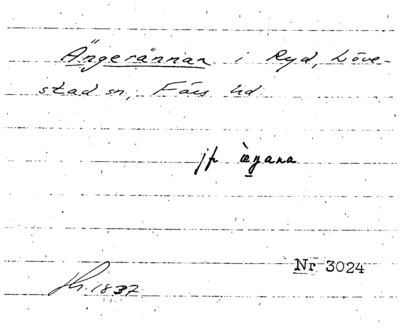 Ängerännan i Ryd, Löve-
stad sn, Färs hd
jfr
Nr 3024
1837